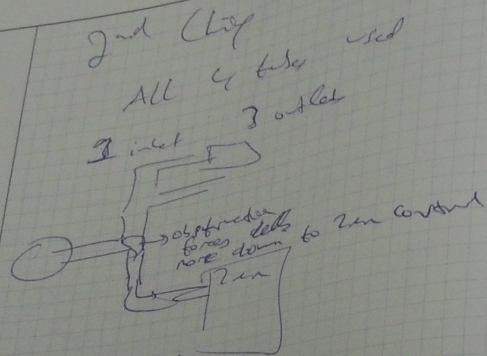 2nd Chip
All 4 tubes used
1 inlet 3 outlets
obstruction
forces cells
more down to 2nn control
2nn